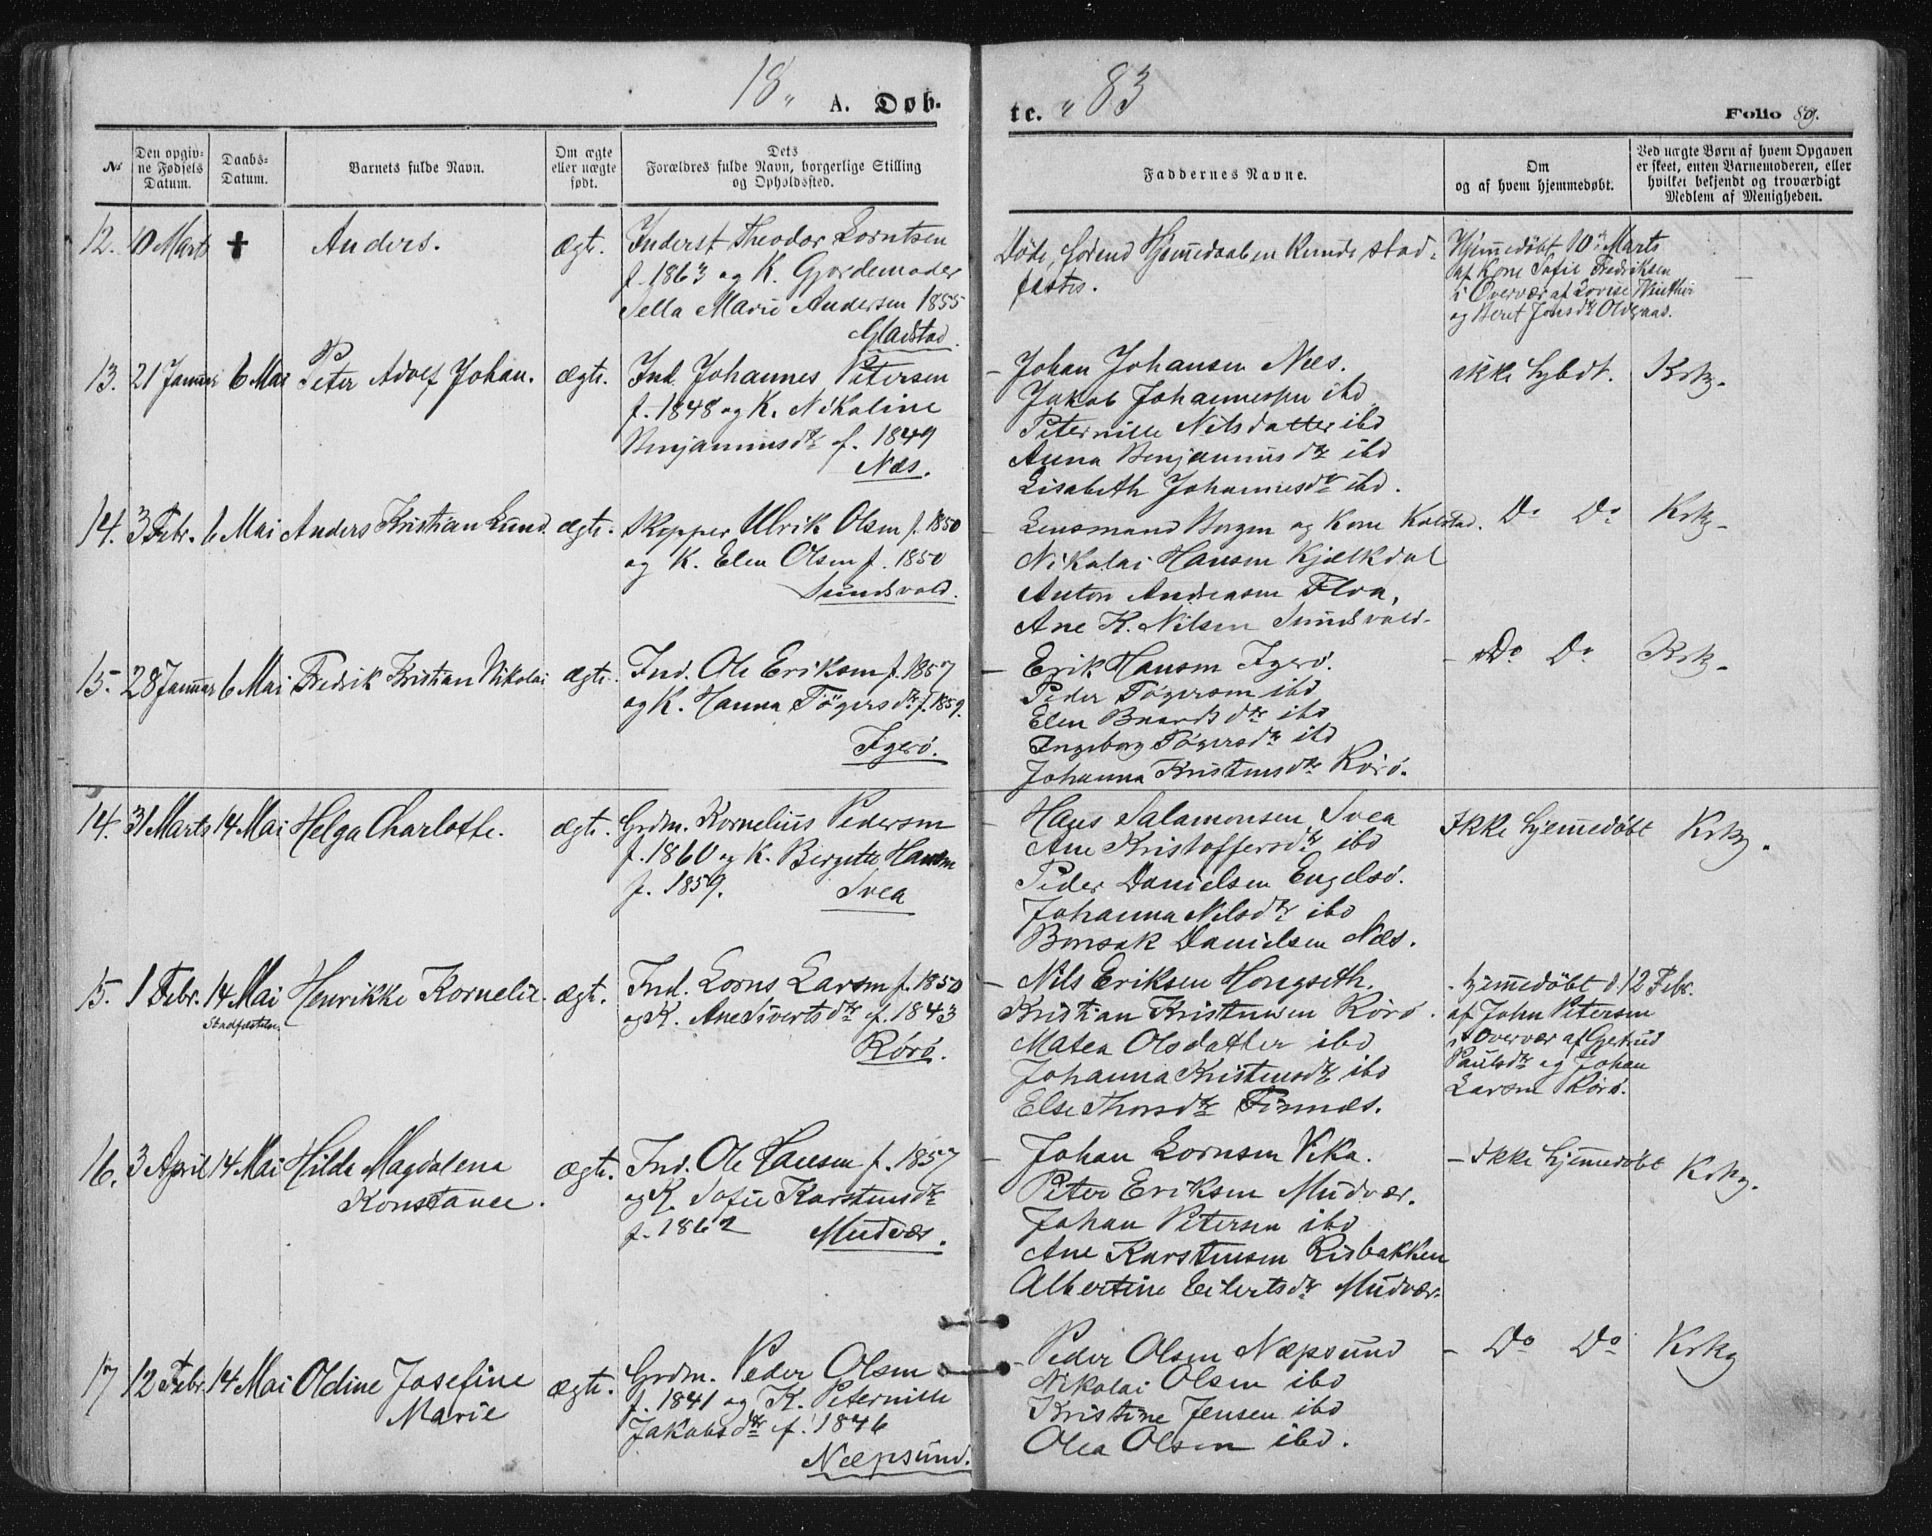 18 " A. Døb-
te. " 83
Folio 89.
No
Den opgiv-
ne Fødsels
Datum.
Daabs-
Datum.
Barnets fulde Navn.
Om ægte
eller uægte
født.
Dets
Forældres fulde Navn, borgerlige Stilling
og Opholdssted.
Faddernes Navne.
Om
og af hvem hjemmedøbt.
Ved uægte Børn af hvem Opgaven
er skeet, enten Barnemoderen, eller
hvilket bekjendt og troværdigt
Medlem af Menigheden.
12. 10 Marts † Anders. ægt.
Inderst Theodor Lorntsen
f. 1863 og K. Gjordemoder
Sella Marie Andersen 1855
Gladstad.
Døde, førend Hjemmedaaben kunde stad-
fæstes.
Hjemmedøbt 10 Marts
af Kone Sofie Fredriksen
i Overvær af Lovise
og Beret Jonsdtr
13. 21 Januar 6 Mai Peter Adolf Johan. ægte.
Ind. Johannes Petersen
f. 1848 og K. Nikoline
Benjaminsdtr f. 1849
Næs.
Johan Johansen Næs.
Jakob Johannessen ibd
Peternille Nilsdatter ibd
Anna Benjaminsdtr ibd
Lisabeth Johannesdtr ibd.
ikke hjbdt. Krkg.
14. 3 Febr. 6 Mai Anders Kristian Lund. ægte.
Skipper Ulrik Olsen f. 1850
og K. Elen Olsen f. 1850
Sundsvold.
Lensmand Borgen og Kone Kolstad.
Nikolai Hansen Kjælkdal
Anton Andreasen Floa,
Ane K. Nilsen Sundsvold.
Do Do Krkg.
15. 28 Januar 6 Mai Fredrik Kristian Nikolai ægte.
Ind. Ole Eriksen f. 1857
og K. Hanna Tøgersdtr f. 1859.
Igerø.
Erik Hansen Igerø.
Peder Tøgersen ibd
Elen ibd
Ingeborg Tøgersdtr ibd
Johanna Kristensdtr Rørø.
Do Do Krkg.
14. 31 Marts 14 Mai Helga Charlotte. ægte.
Grdm. Kornelius Pedersen
f. 1860 og K. Birgitte Hansen
f. 1859. Svea
Hans Salamonsen Svea
Ane Kristoffersdtr ibd
Peder Danielsen Engelsø.
Johanna Nilsdtr ibd
Bonsak Danielsen Næs.
Ikke hjemmedøbt Krkg.
15. 1 Febr. 14 Mai Henrikke Kornelie. ægte.
Stadfæstelse
Ind. Lorns Larsen f. 1850
og K. Ane Sivertsdtr f. 1843
Rørø.
Nils Eriksen Hongseth.
Kristian Kristensen Rørø.
Matea Olsdatter ibd
Johanna Kristensdtr ibd
Else Thorsdtr Finnæs.
hjemmedøbt d. 12 Febr.
af John Petersen
i Overvær af Gertrud
Paulsdtr og Johan
Larsen Rørø.
16. 3 April 14 Mai Hilda Magdalena
Konstance. ægte.
Ind. Ole Hansen f. 1857
og K. Sofie Karstensdtr
f. 1862 Mudvær.
Johan Lornsen Vika.
Peter Eriksen Mudvær.
Johan Petersen ibd
Ane Karstensen Risbakken
Albertine Eilertsdtr Mudvær.
Ikke hjemmedøbt Krkg.
17 12 Febr 14 Mai Oldine Josefine
Marie ægte.
Grdm. Peder Olsen
f. 1841 og K. Peternille
Jakobsdtr f. 1846
Næpsund.
Peder Olsen Næpsund
Nikolai Olsen ibd
Kristine Jensen ibd
Olea Olsen ibd.
Do Do Krkg